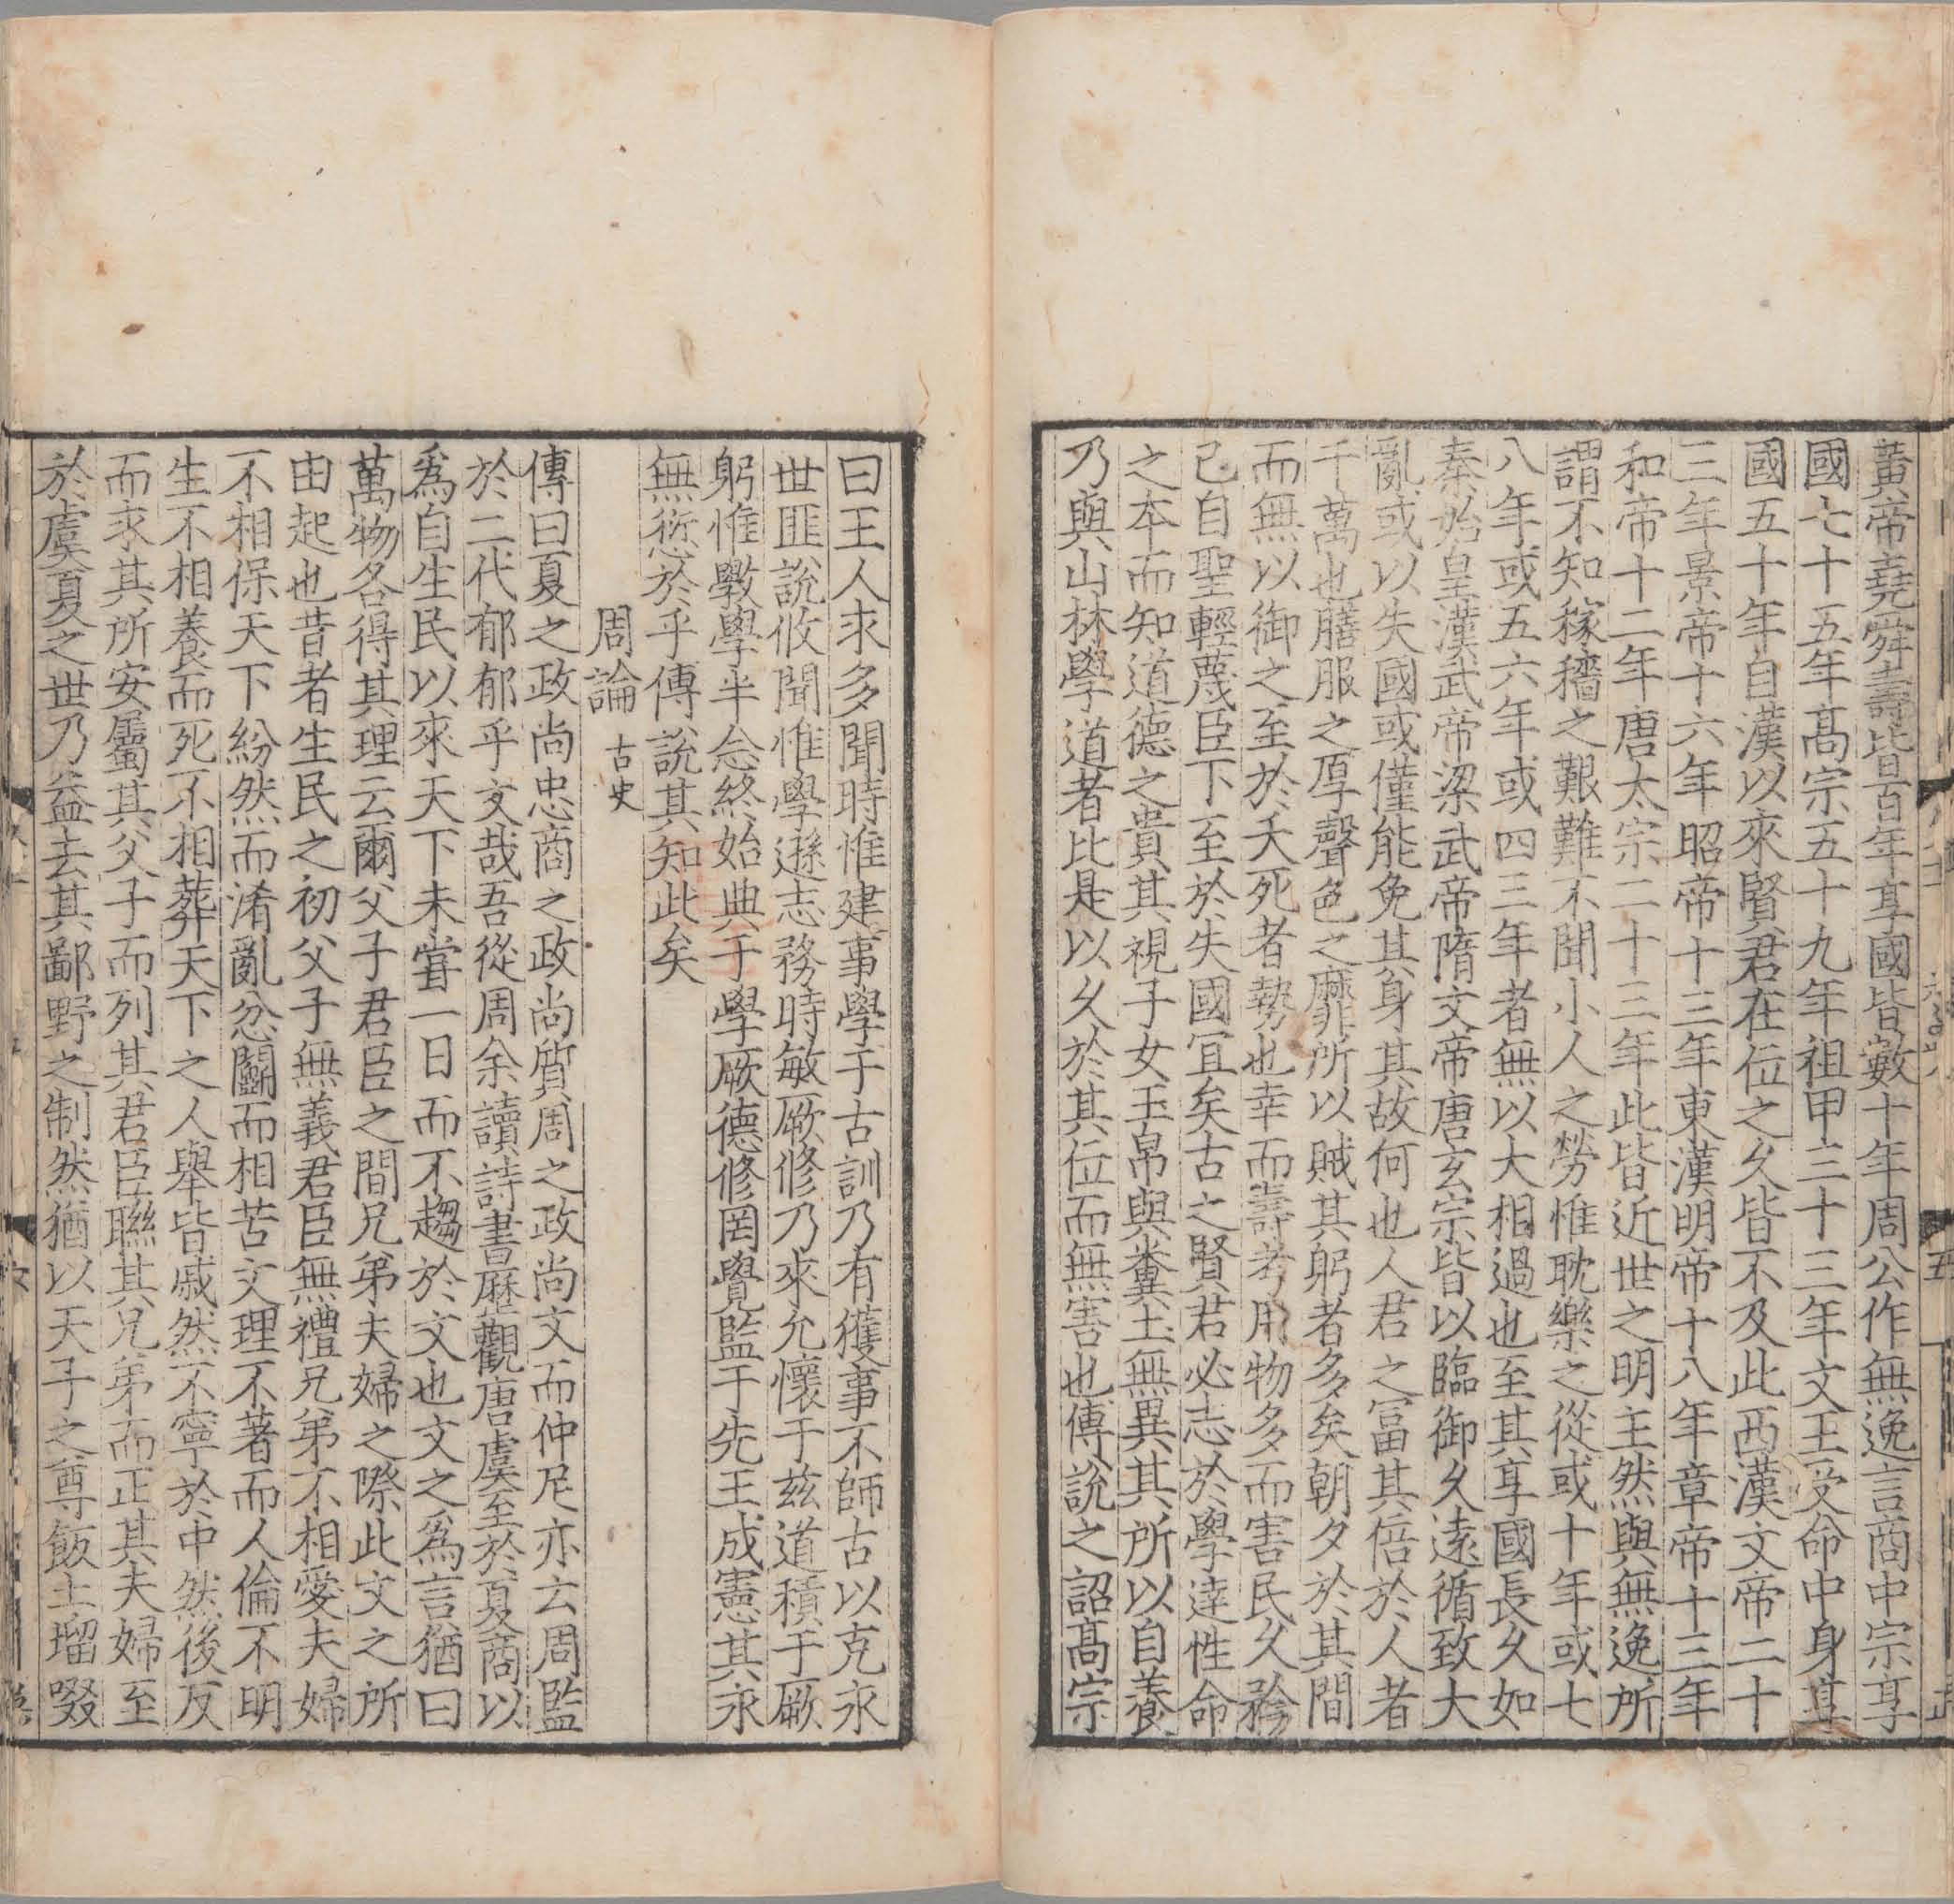 黃帝堯舜壽皆百年享國皆數十年周公作無逸言商中宗享
國七十五年高宗五十九年祖甲三十三年文王受命中身享
國五十年自漢以來賢君在位之久皆不及此西漢文帝二十
三年景帝十六年昭帝十三年東漢明帝十八年章帝十三年
和帝十二年唐太宗二十三年此皆近世之明主然與無逸所
謂不知稼穡之艱難不聞小人之勞惟耽樂之從或十年或七
八年或五六年或四三年者無以大相過也至其享國長久如
秦始皇漢武帝梁武帝隋文帝唐玄宗皆以臨御久遠循致大
亂或以失國或僅能免其身其故何也人君之富其倍於人者
千萬也膳服之厚聲色之靡所以賊其躬者多矣朝夕於其間
而無以御之至於夭死者勢也幸而壽考用物多而害民久矜
己自聖輕蔑臣下至於失國宜矣古之賢君必志於學達性命
之本而知道德之貴其視子女玉帛與糞土無異其所以自養
乃與山林學道者比是以久於其位而無害也傅說之詔高宗
曰王人求多聞時惟建事學于古訓乃有獲事不師古以克永
世匪說攸聞惟學遜志務時敏厥修乃來允懷于茲道積于厥
躬惟斆學半念終始典于學厥德修罔覺監于先王成憲其永
無愆於乎傅說其知此矣
周論 古史
傳曰夏之政尚忠商之政尚質周之政尚文而仲尼亦云周監
於二代郁郁乎文哉吾從周余讀詩書歷觀唐虞至於夏商以
為自生民以來天下未嘗一日而不趨於文也文之為言猶曰
萬物各得其理云爾父子君臣之間兄弟夫婦之際此文之所
由起也昔者生民之初父子無義君臣無禮兄弟不相愛夫婦
不相保天下紛然而淆亂忿鬬而相苦文理不著而人倫不明
生不相養而死不相葬天下之人舉皆戚然不寧於中然後反
而求其所安屬其父子而列其君臣聯其兄弟而正其夫婦至
於虞夏之世乃益去其鄙野之制然猶以天子之尊飯土塯啜